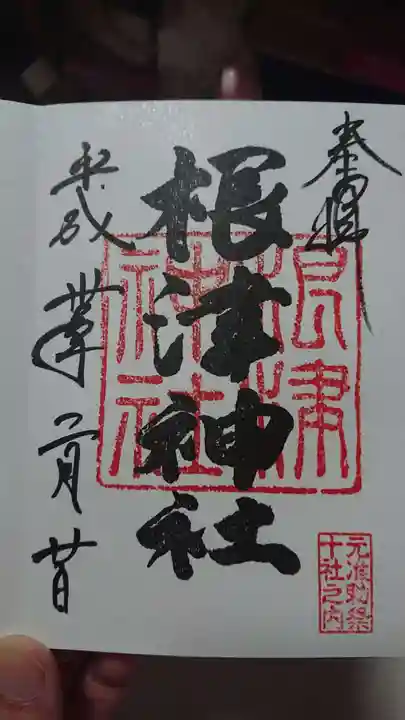 奉拝
根津神社
根津神社
元准勅祭
十社之内
平成 年 月廿日